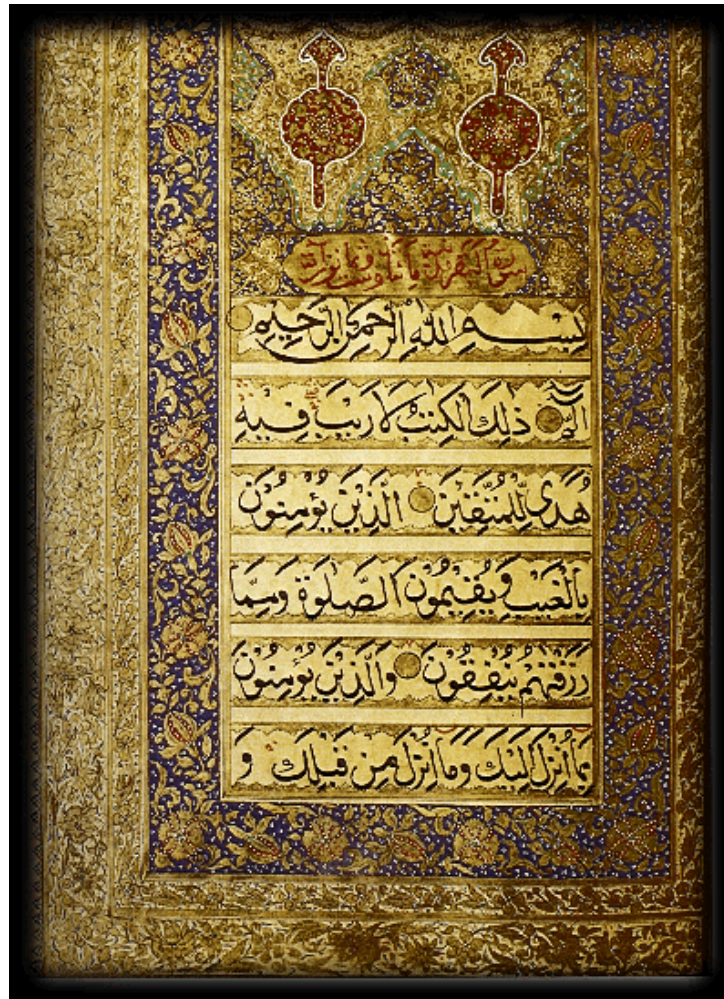 سورة البقرة
بِسْمِ اللهِ الرَّحْمٰنِ الرَّحِيمِ
الٓمٓ ذٰلِكَ الْكِتٰبُ لَا رَيْبَ فِيهِ
هُدًى لِلْمُتَّقِينَ الَّذِينَ يُؤْمِنُونَ
بِالْغَيْبِ وَيُقِيمُونَ الصَّلٰوةَ وَمِمَّا
رَزَقْنٰهُمْ يُنْفِقُونَ وَالَّذِينَ يُؤْمِنُونَ
بِمَا أُنْزِلَ إِلَيْكَ وَمَا أُنْزِلَ مِنْ قَبْلِكَ وَ